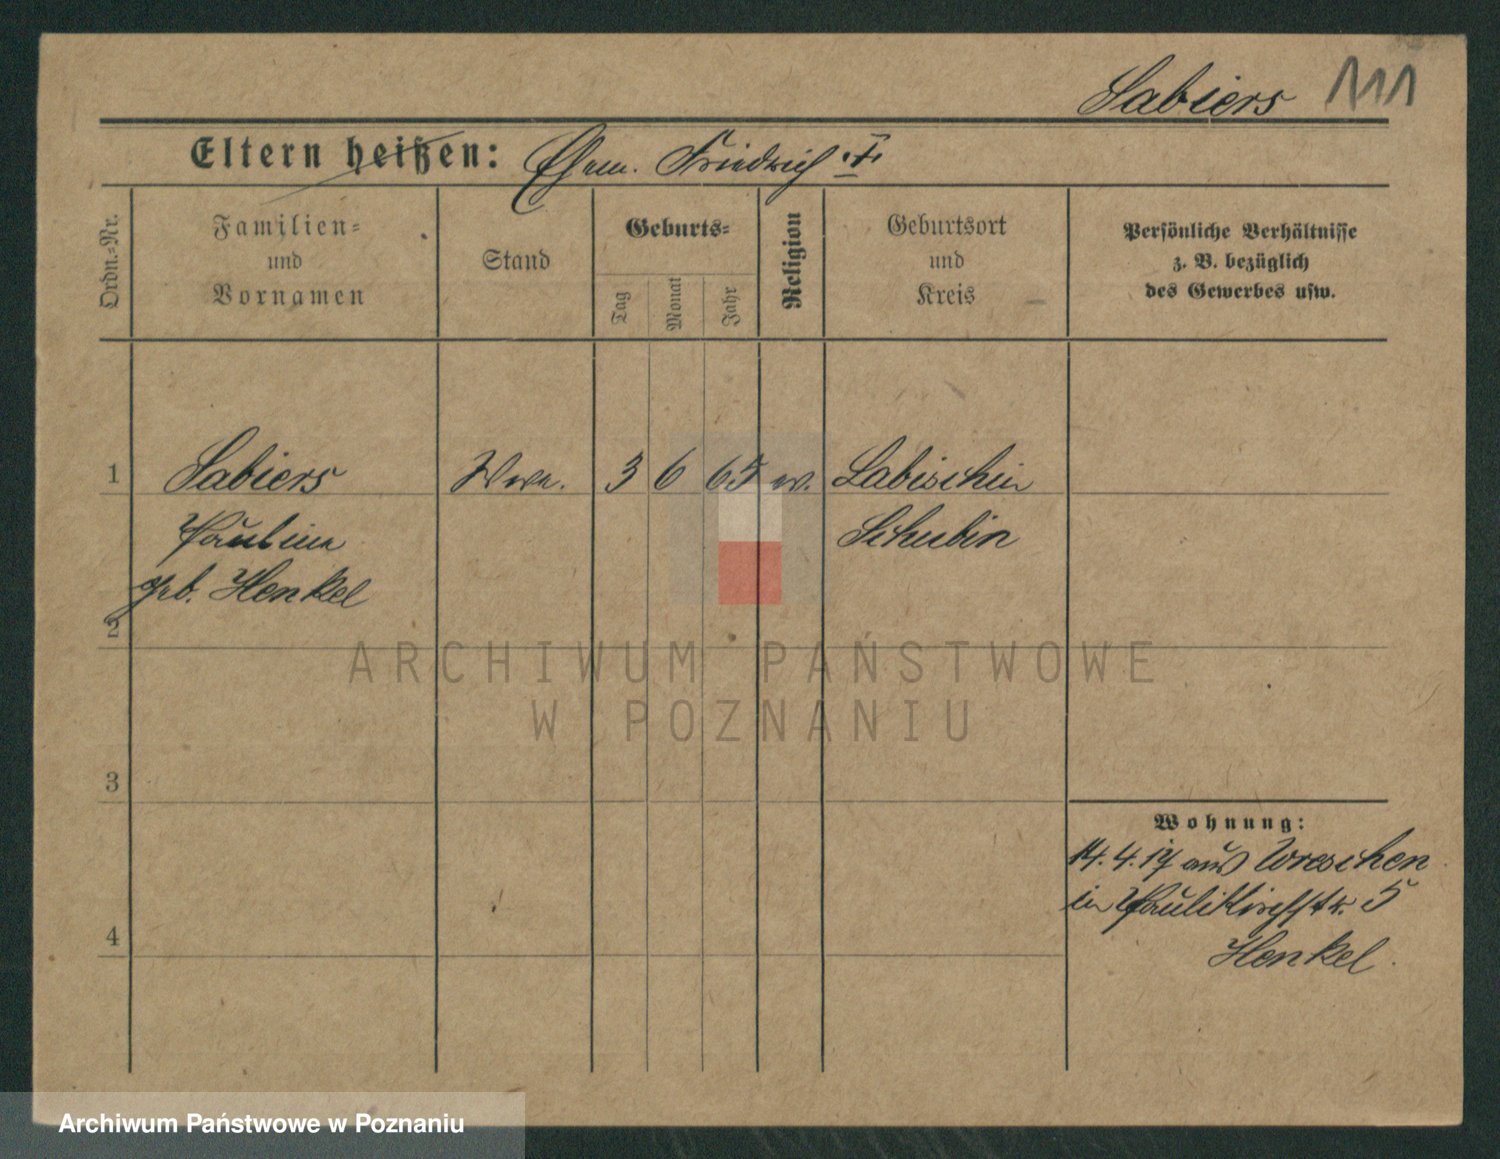 Sabiers 111
Eltern heißen: Ehem. Friedrich †.
Ordn.-Nr.
Familien-
und
Vornamen
Stand
Geburts-
Tag
Monat
Jahr
Religion
Geburtsort
und
Kreis
Persönliche Verhältnisse
z. B. bezüglich
des Gewerbes usw.
1 Sabiers Wwe. 3 6 65 ev. Labischin
Pauline Schubin
geb. Henkel
2
ARCHIWUM PAŃSTWOWE
W POZNANIU
3
Wohnung:
14. 4. 17 aus Wreschen
in Paulikirchstr. 5
4
Henkel.
Archiwum Państwowe w Poznaniu